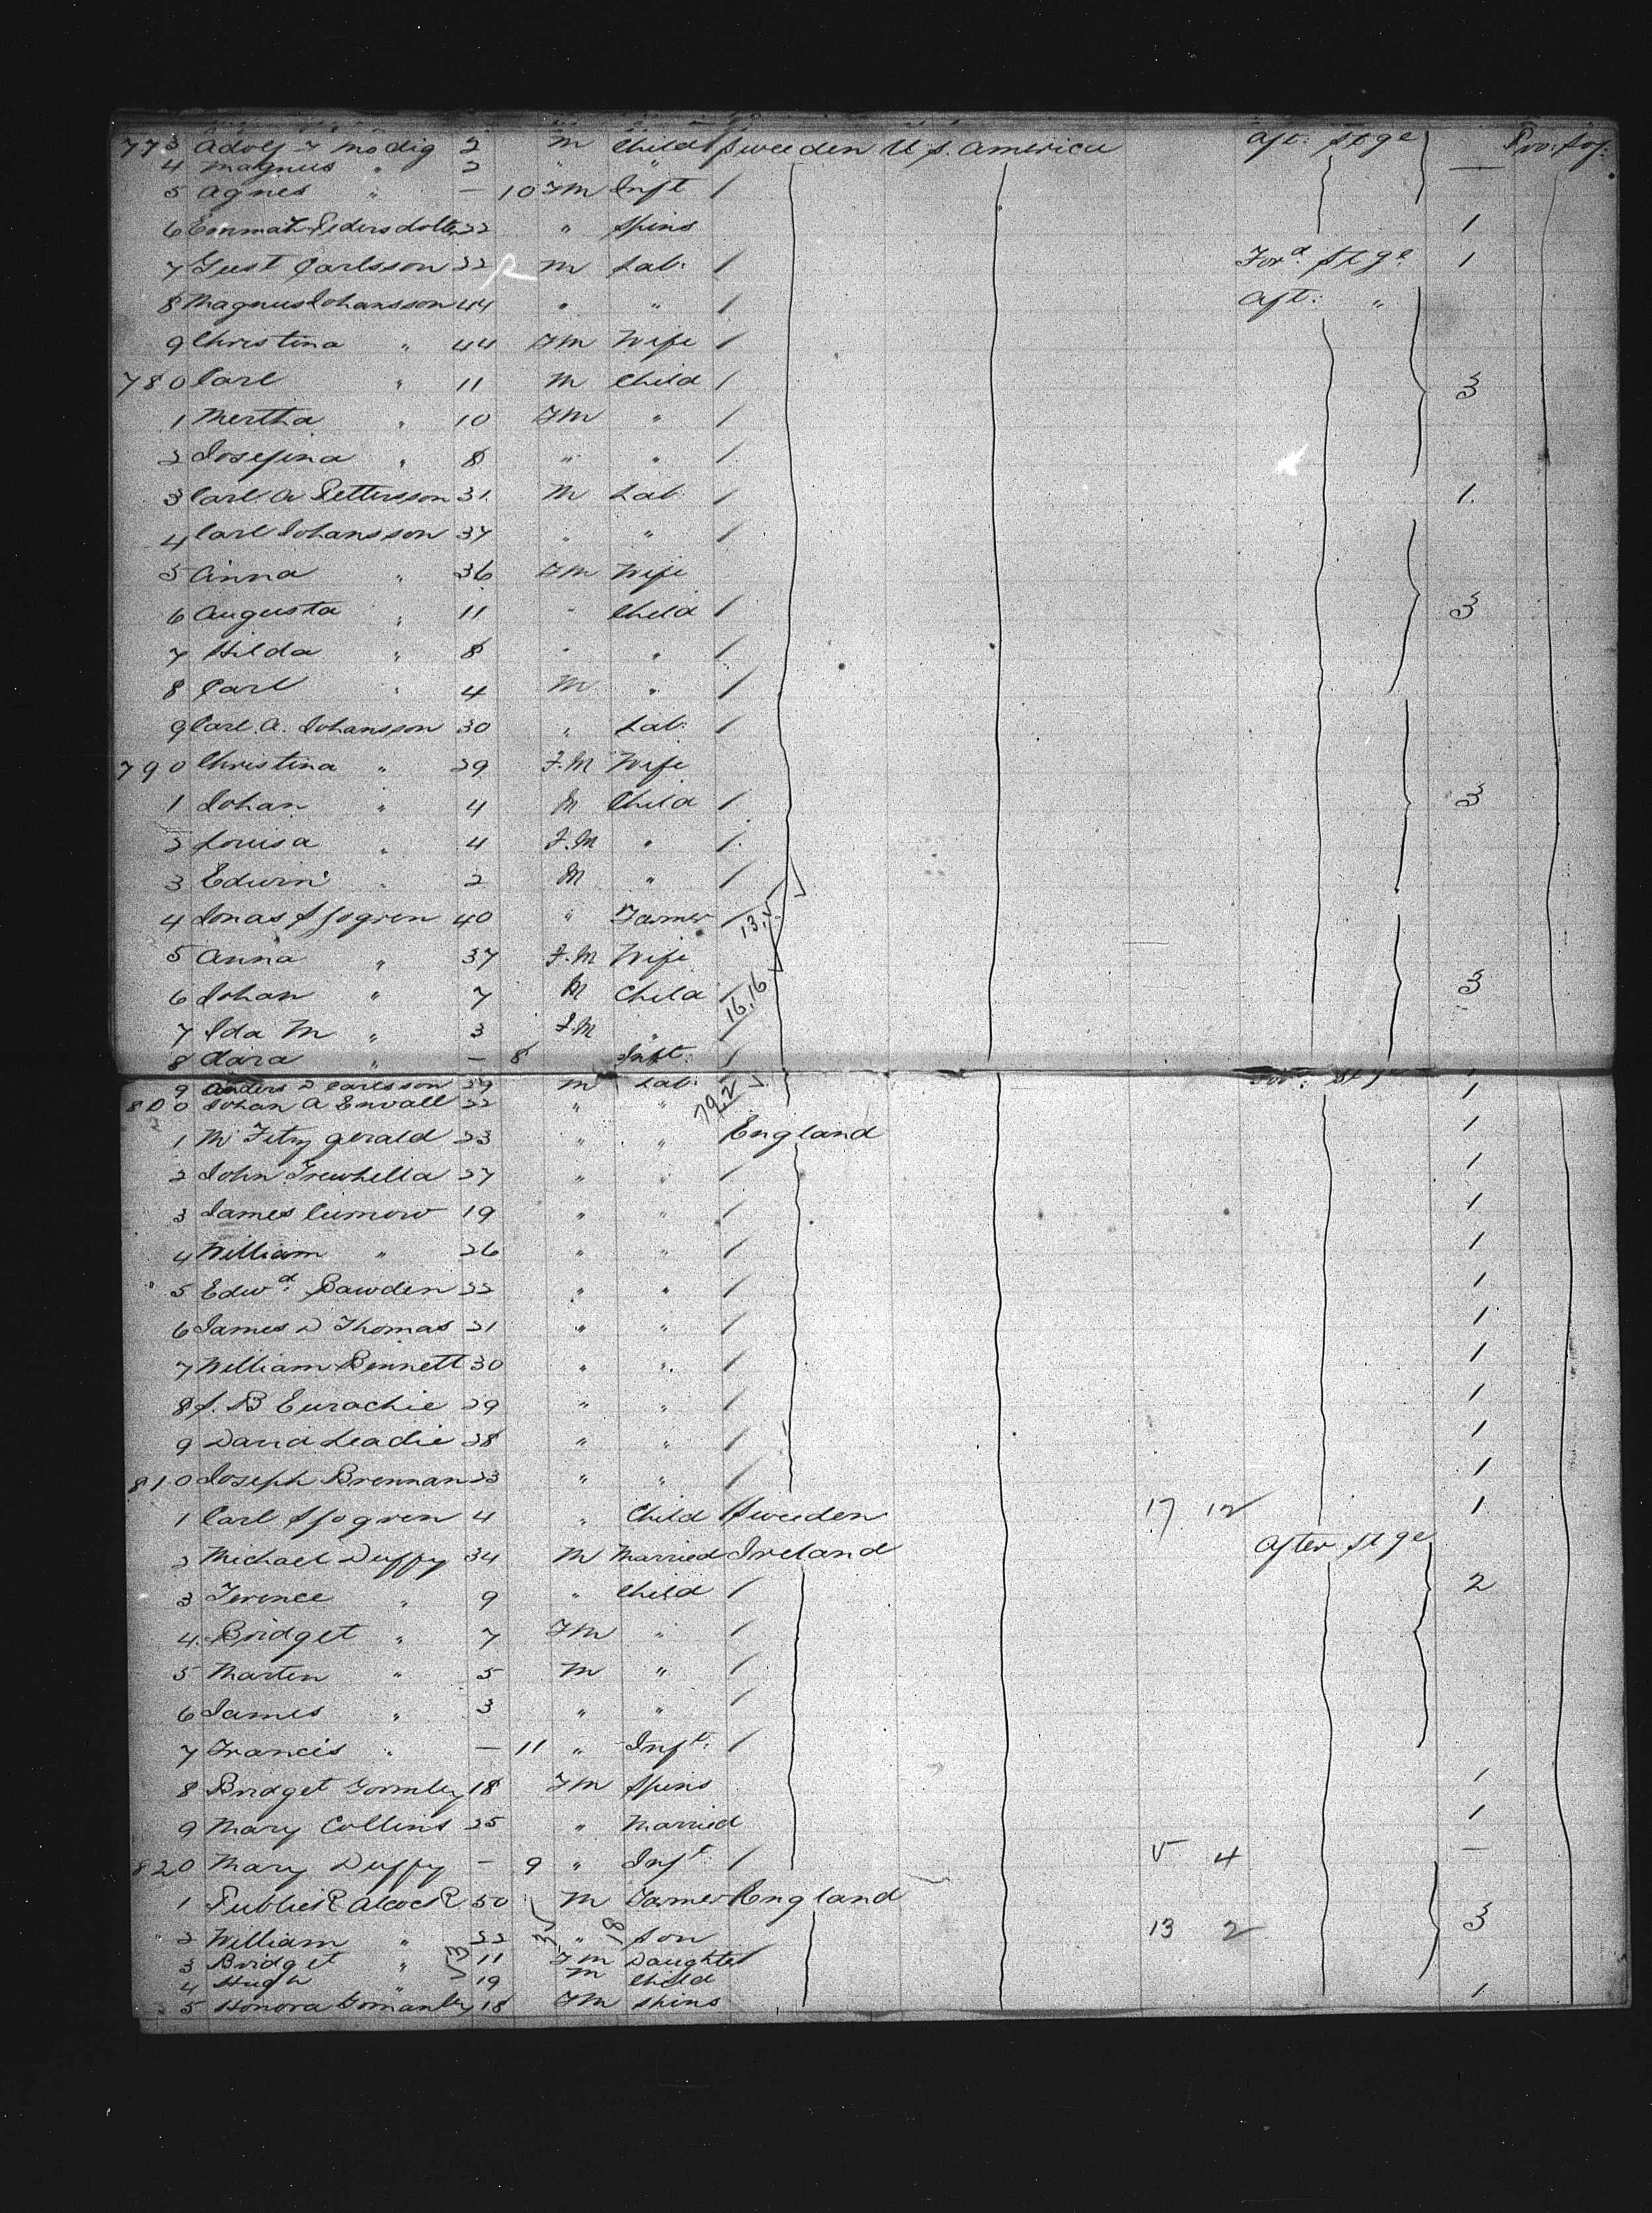 773 Adolf F Modig 2 M Child Sweden U.S. America Aft: Stge Pro: Soj:
4 Magnus " 2 " " —
5 Agnes " — 10 FM Inft /
6 Emma Pedersdotter 22 " Spins 1
7 Gust Carlsson 22 M Lab: / Ford Stge 1
8 Magnus Johansson 44 " " / Aft: "
9 Christina " 44 FM Wife /
780 Carl " 11 M Child / 3
1 Mertha " 10 FM " /
2 Josefina " 8 " " /
3 Carl A Pettersson 31 M Lab / 1
4 Carl Johansson 37 " " /
5 Anna " 36 FM Wife
6 Augusta " 11 " Child / 3
7 Hilda " 8 " " /
8 Carl " 4 M " /
9 Carl A. Johansson 30 " Lab: /
790 Christina " 29 F.M Wife
1 Johan " 4 M Child / 3
2 Louisa " 4 F.M " /
3 Edwin " 2 M " /
4 Jonas Sjogren 40 " Farmer / 13,5
5 Anna " 37 F.M Wife
6 Johan " 7 M Child / 16,16 3
7 Ida M " 3 F.M " /
8 Clara " — 8 Inft: /
9 Anders D Carlsson 39 M Lab: Ford: Stge 1
800 Johan A Envall 22 " " 79,2 1
1 M Fitzgerald 23 " " England 1
2 John Trewhella 27 " " / 1
3 James Curnow 19 " " / 1
4 William " 26 " " / 1
5 Edwd. Bawden 22 " " / 1
6 James D Thomas 21 " " / 1
7 William Bennett 30 " " / 1
8 J. B Eurachie 29 " " / 1
9 David Leadie 28 " " / 1
810 Joseph Brennan 23 " " / 1
1 Carl Sjogren 4 " Child Sweden 17 12 1
2 Michael Duffy 34 M Married Ireland After Stge
3 Terence " 9 " Child / 2
4 Bridget " 7 FM " /
5 Marten " 5 M " /
6 James " 3 " " /
7 Francis " — 11 " Inft: /
8 Bridget Gormley 18 FM Spins 1
9 Mary Collins 25 " Married 1
820 Mary Duffy — 9 " Inft / 5 4 —
1 Alcock 50 M Farmer England
2 William " 22 " 18 Son 13 2 3
3 Bridget " 11 FM Daughter /
4 Hugh " 19 M Child
5 Honora 18 FM Spins 1